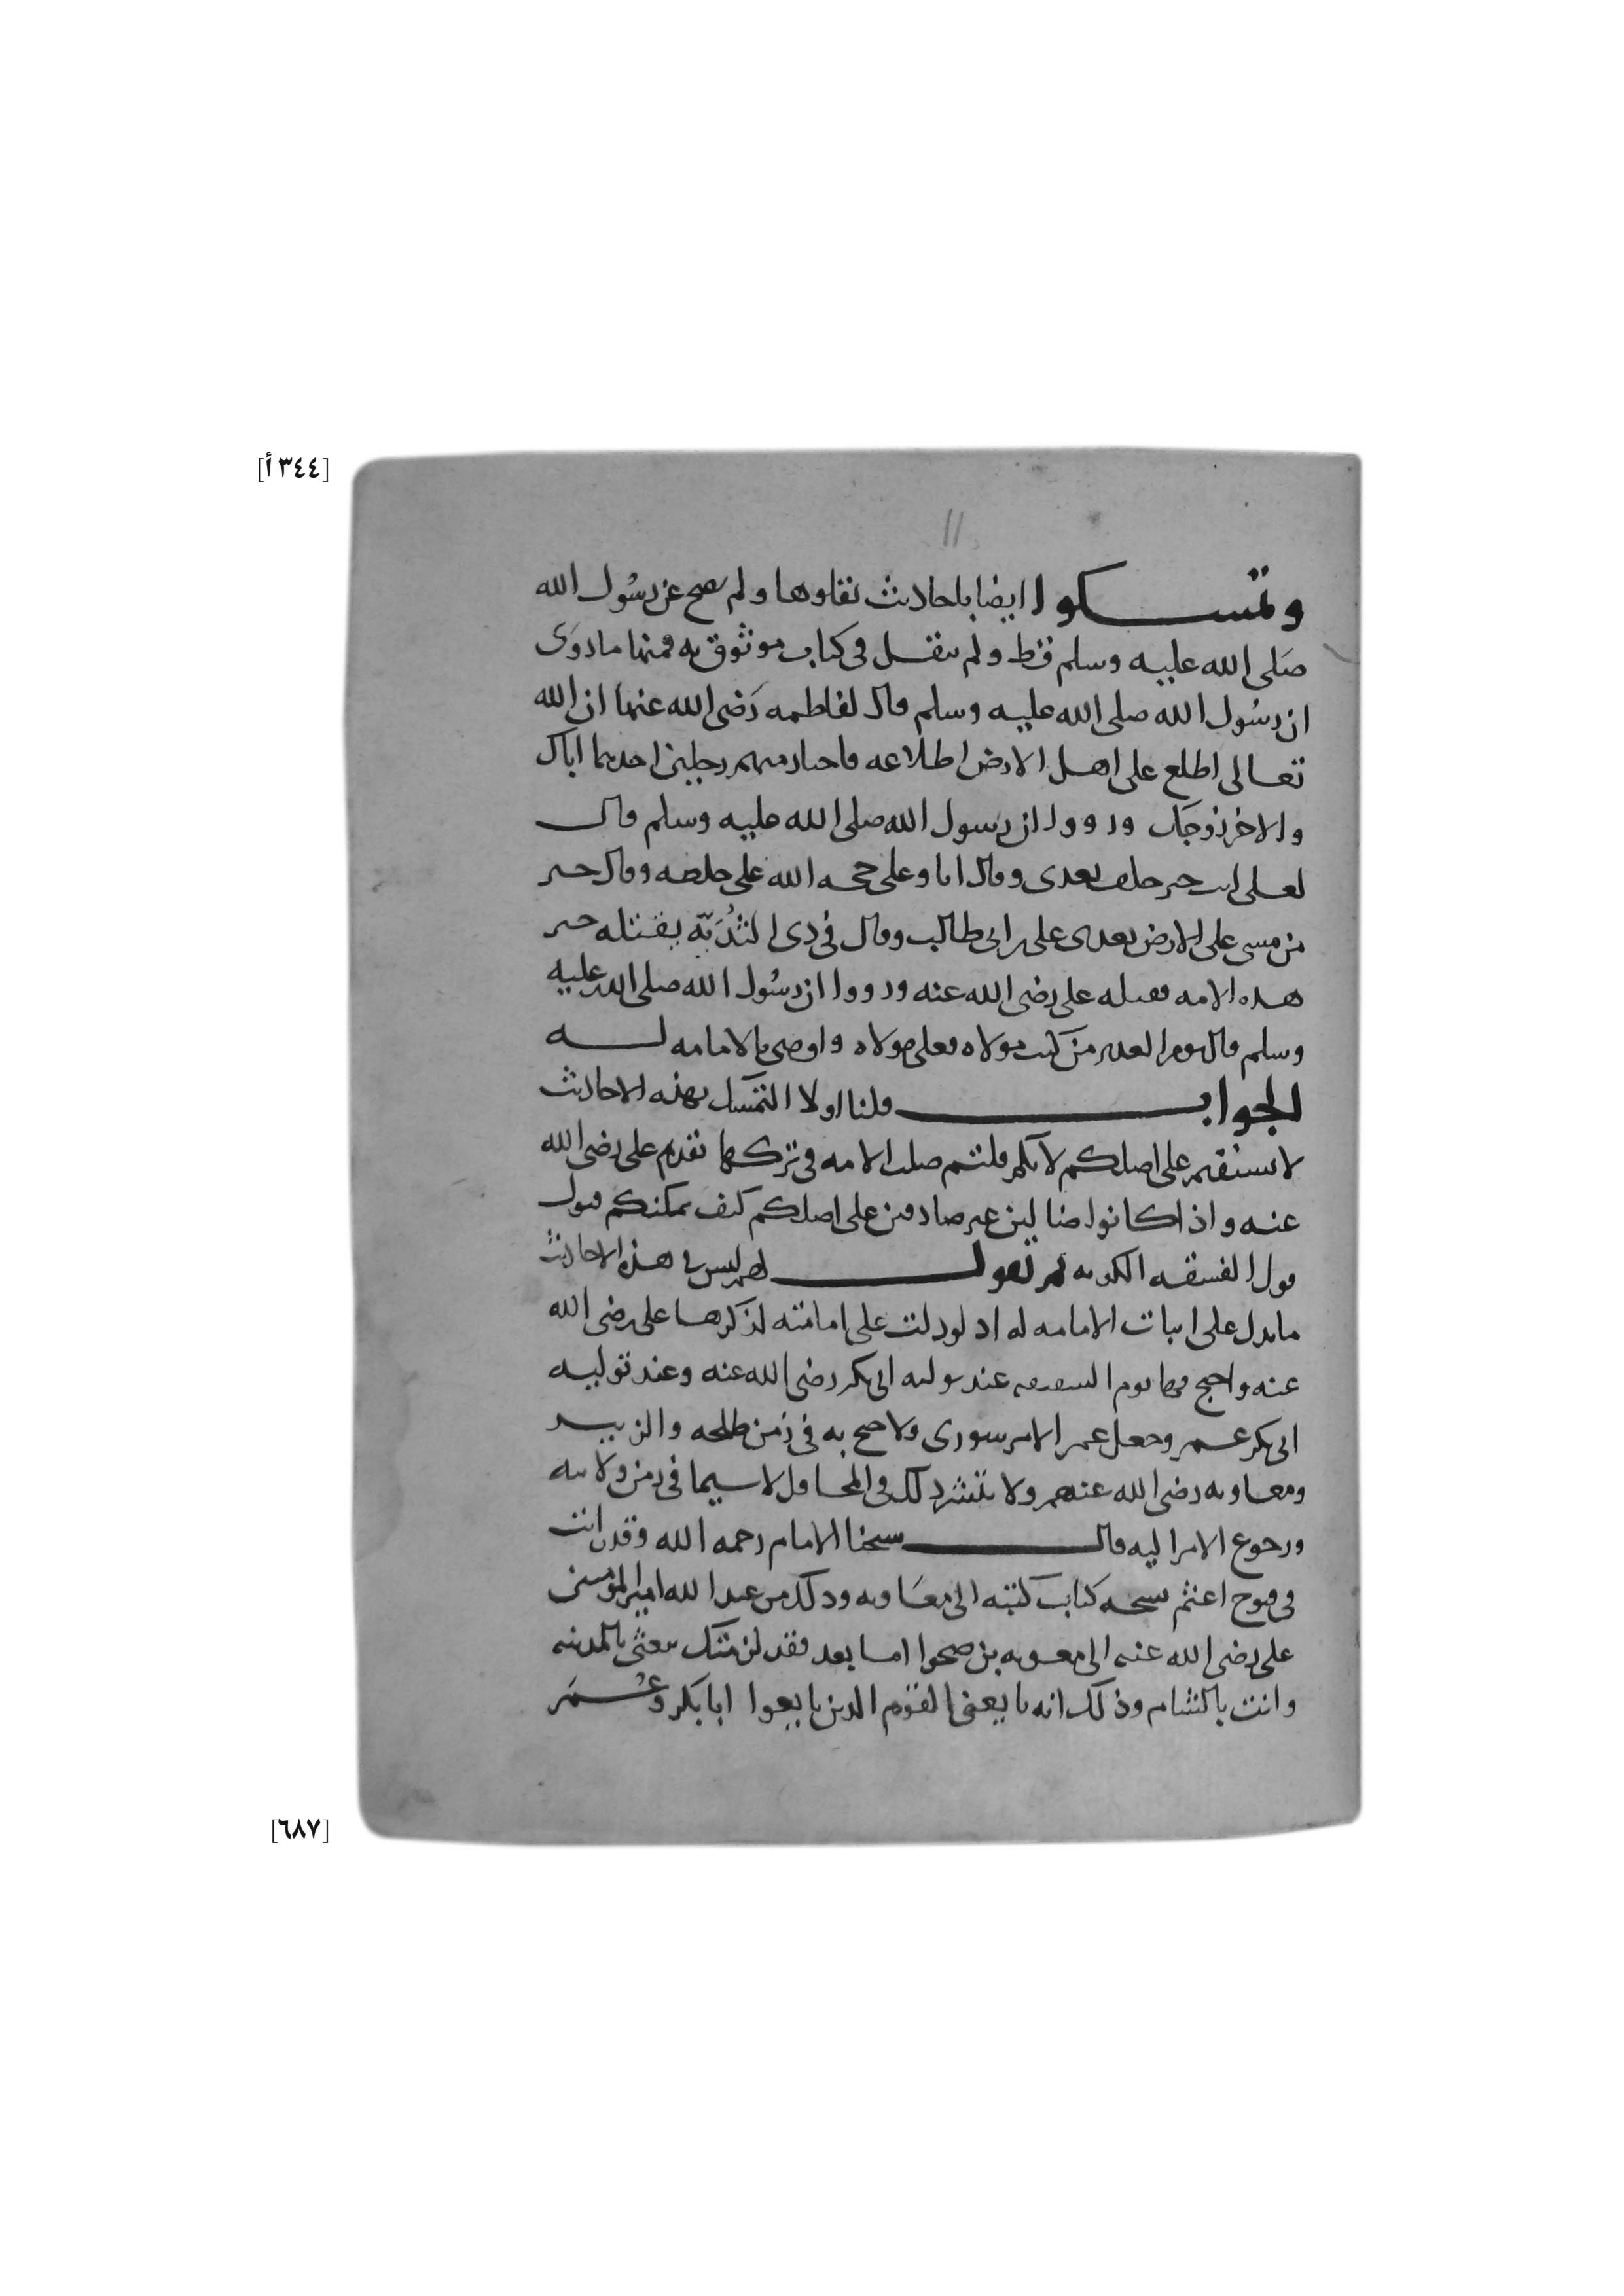 [٣٤٤ أ]
وتمسكوا ايضا باحاديث نقلوها ولم يصح عن رسُول الله
صَلى الله عليه وسلم قط ولم ينقل فى كتاب موثوق به فمنها ما روَى
ان رسُول الله صلى الله عليه وسلم قال لفاطمه رَضى الله عنها ان الله
تعالى اطلع على اهل الارض اطلاعه فاختار منهم رجلين احدهما اباك
والاخر زوجَك ورووا ان رسول الله صلى الله عليه وسلم قال
لعلى انت خير من يخلف بعدى وقال انا وعلى حجه الله على خلقه وقال خير
من مشى على الارض بعدى على بن ابى طالب وقال فى ذى الثُديّة يقتله خير
هذه الامه فقتله على رضى الله عنه ورووا ان رسُول الله صلى الله عليه
وسلم قال يوم الغدير من كنت مولاه فعلى مولاه واوصى بالامامه له
الجواب قلنا اولا التمسك بهذه الاحاديث
لا يستقيم على اصلكم لانكم قلتم ضلت الامه فى تركها تقدم على رضى الله
عنه واذا كانوا ضالين غير صادقين على اصلكم كيف يمكنكم قبول
قول الفسقه الكذبه ثم نقول لهم ليس فى هذه الاحاديث
ما يدل على اثبات الامامه له اذ لو دلت على امامته لذكرها على رضى الله
عنه واحتج بها يوم السقيفه عند توليه ابى بكر رضى الله عنه وعند توليه
ابى بكر عمر وجعل عمر الامر شورى ولاحتج به فى زمن طلحه والزبير
ومعاويه رضى الله عنهم ولانتشر ذلك فى المحافل لا سيما فى زمن ولايته
ورجوع الامر اليه قال شيخنا الامام رحمه الله وقد رايت
فى فتوح اعثم نسخه كتاب كتبه الى معَاويه وذلك من عبد الله امير المؤمنين
على رضى الله عنه الى معويه بن صخر اما بعد فقد لزمتك بيعتى بالمدينه
وانت بالشام وذلك انه بايعنى القوم الذين بايعوا ابا بكر وعُمَر
[٦٨٧]